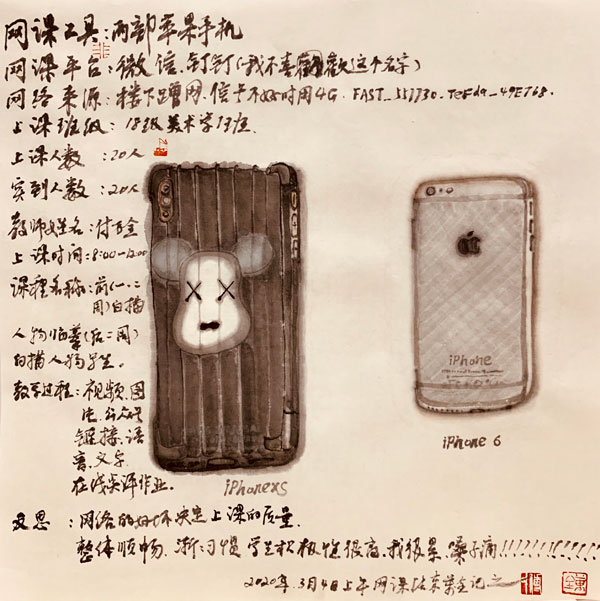 网课工具:两部苹果手机
网课平台:微信、钉钉(我不喜歡这个名字)
网络来源:楼下蹭网,信号不好时用4G.
上课班级:18级美术学13班.
上课人数:20人
实到人数:20人
教师姓名:付百全
上课时间:8:00-12:00
课程名称:前(一、二
周)白描
人物临摹(后二周)
白描人物写生。
教学过程:视频、图
片、公众号
链接、语
音、文字
在线点评作业。
iPhone
iPhonexs
iPhone 6
反思:网络的好坏决定上课的质量.
整体顺畅、渐习惯、学生积极性很高、我很累、嗓子痛!!!!!!!!!!!!!
2020年.3月4日上午网课结束